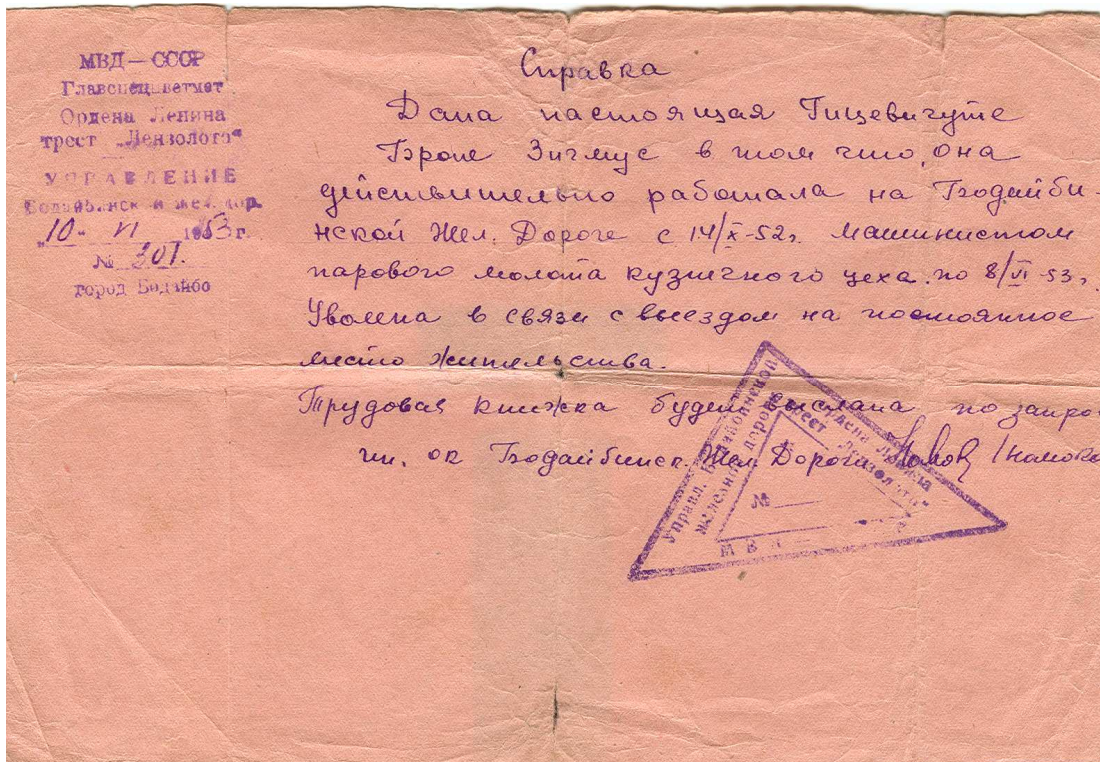 МВД — СССР
Главспеццветмет
Ордена Ленина
трест „Лензолото“
УПРАВЛЕНИЕ
Бодайбинской жел. дор.
„10“ VI 1953 г.
№ 301.
город Бодайбо
Справка
Дана настоящая Гицевичуте
Броне Зигмус в том что, она
действительно работала на Бодайби-
нской Жел. Дороге с 14/X-52г. машинистом
парового молота кузнечного цеха. по 8/VI-53г.
Уволена в связи с выездом на постоянное
место жительства.
Трудовая книжка будет выслана по запро
ин. ок Бодайбинск. Жел. Дороги
Управл. Бодайбинской
железной дороги
Ордена Ленина
трест „Лензолото“
№
МВД